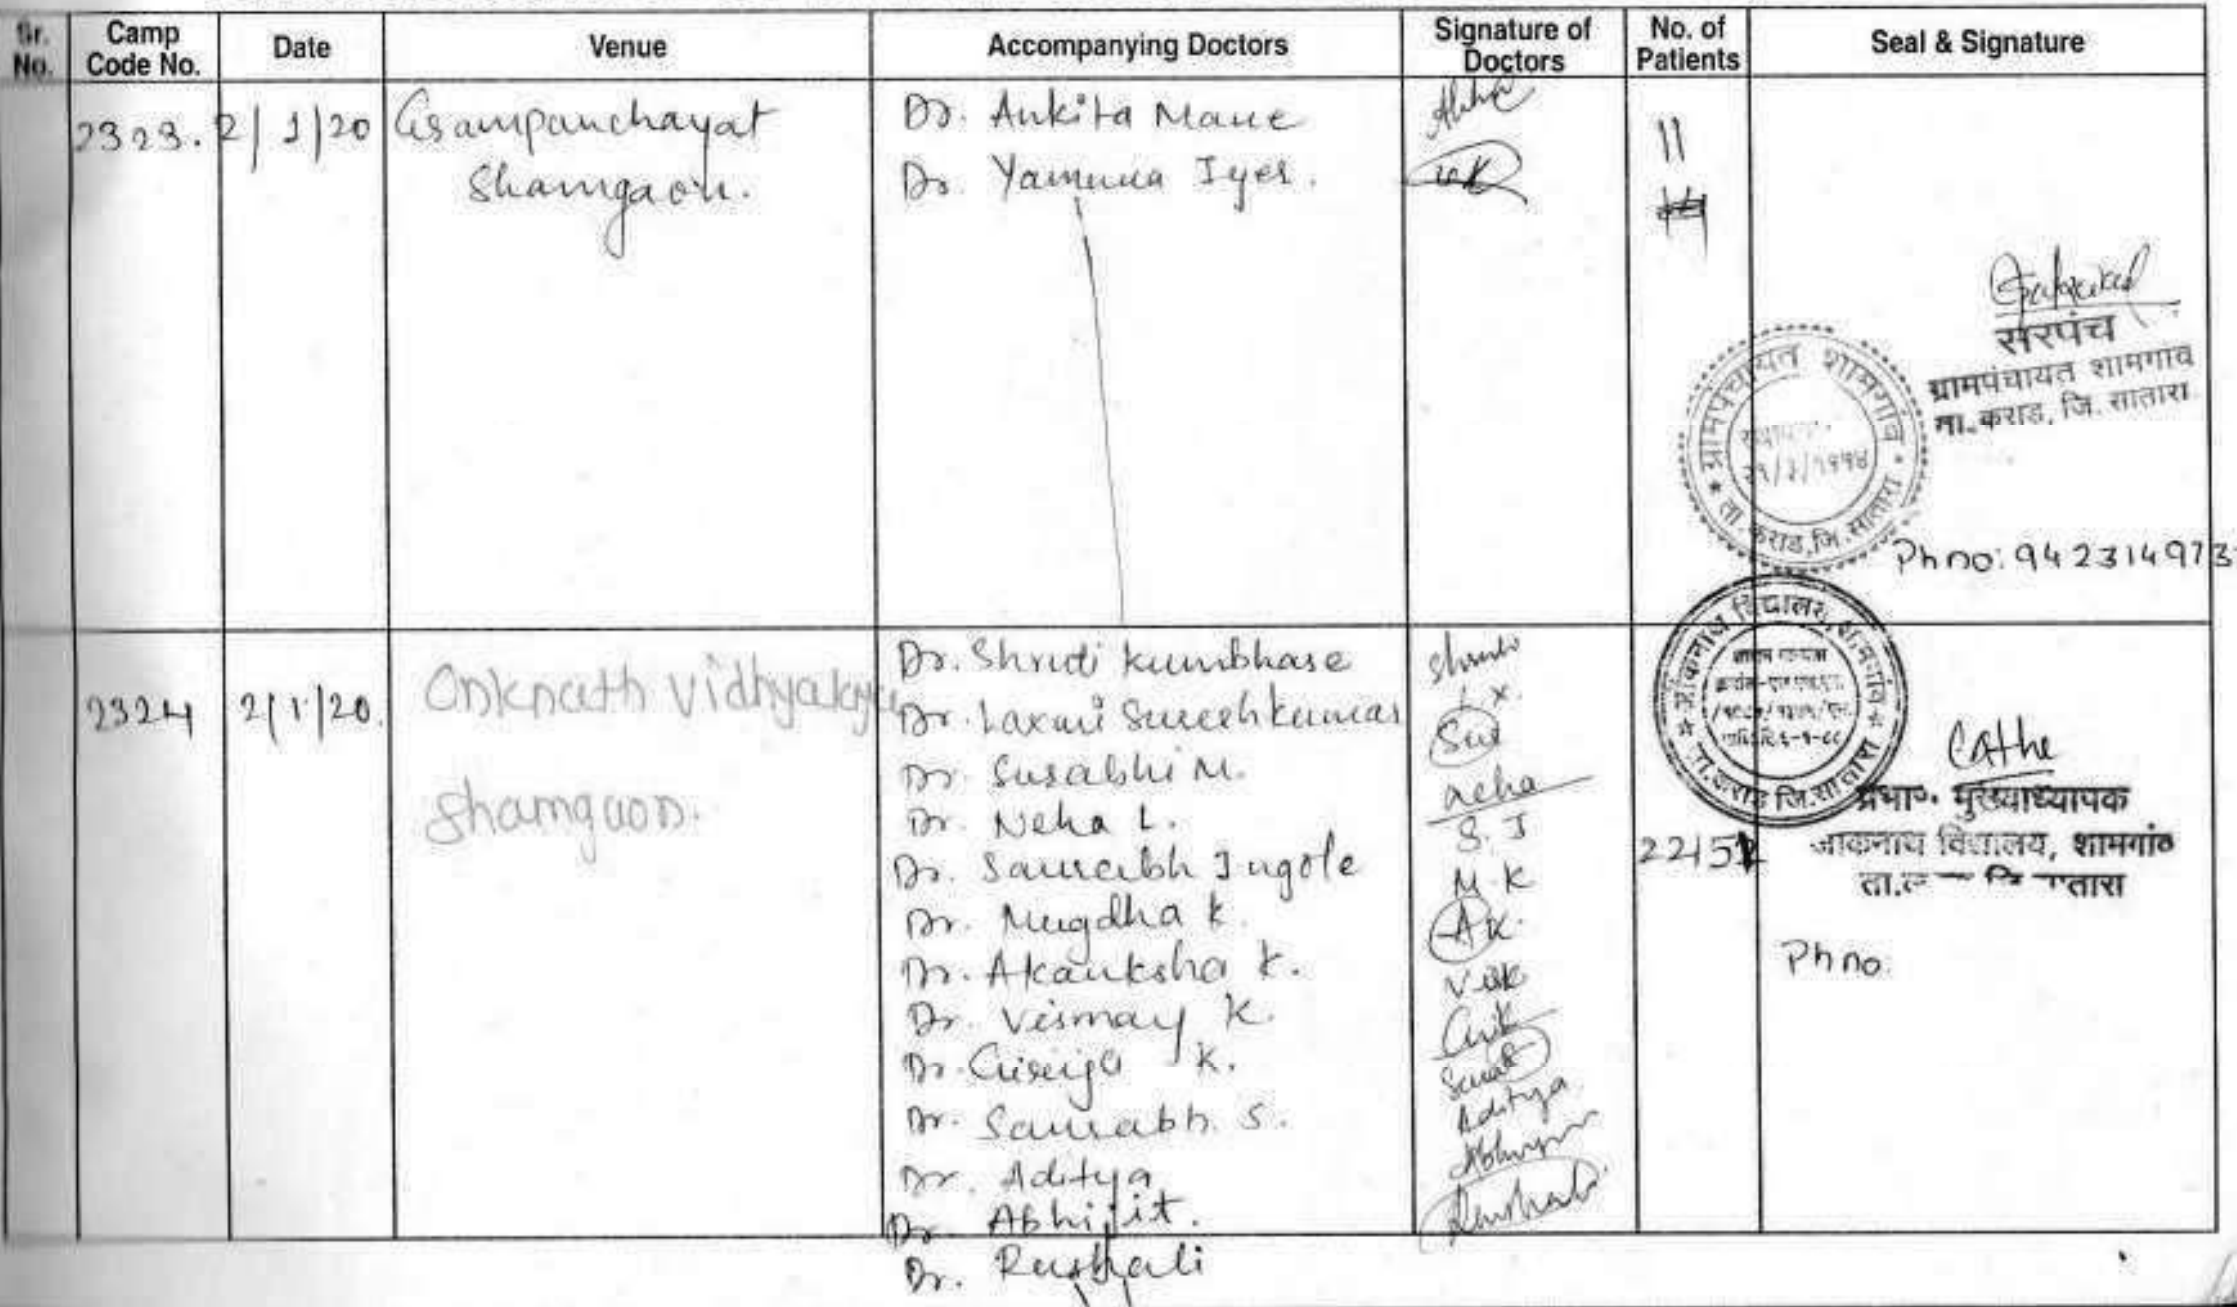 Sr. No. Camp Code No. Date Venue Accompanying Doctors Signature of Doctors No. of Patients Seal & Signature
2323. 2/1/20 Grampanchayat Shamgaon.
Dr. Ankita Mane
Dr. Yamuna Iyer.
11
सरपंच
ग्रामपंचायत शामगाव
ता.कराड, जि. सातारा
ग्रामपंचायत शामगांव
ता. कराड, जि. सातारा
Ph no: 942314973
2324 2/1/20. Onknath Vidhyalaya
Shamgaon.
Dr. Shruti Kumbhase
Dr. Laxmi Sureshkumar
Dr. Surabhi M.
Dr. Neha L.
Dr. Saurabh Ingole
Dr. Mugdha K.
Dr. Akanksha K.
Dr. Vismay K.
Dr. Girija K.
Dr. Saurabh. S.
Dr. Aditya
Dr. Abhijit.
Dr. Rushali
neha
S. J
M. K
AK.
Aditya
विद्यालय, शामगांव
ता.कराड जि.सातारा
प्रभा. मुख्याध्यापक
विद्यालय, शामगांव
Ph no.